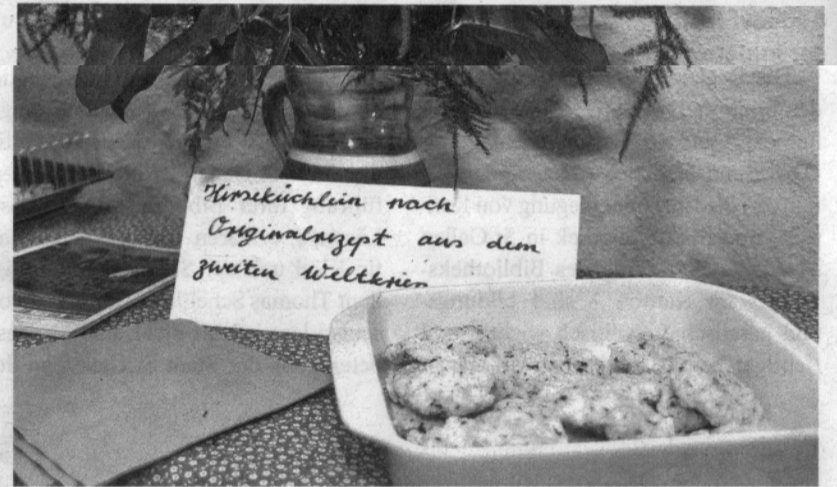 Hirseküchlein nach
Originalrezept aus dem
zweiten Weltkrieg